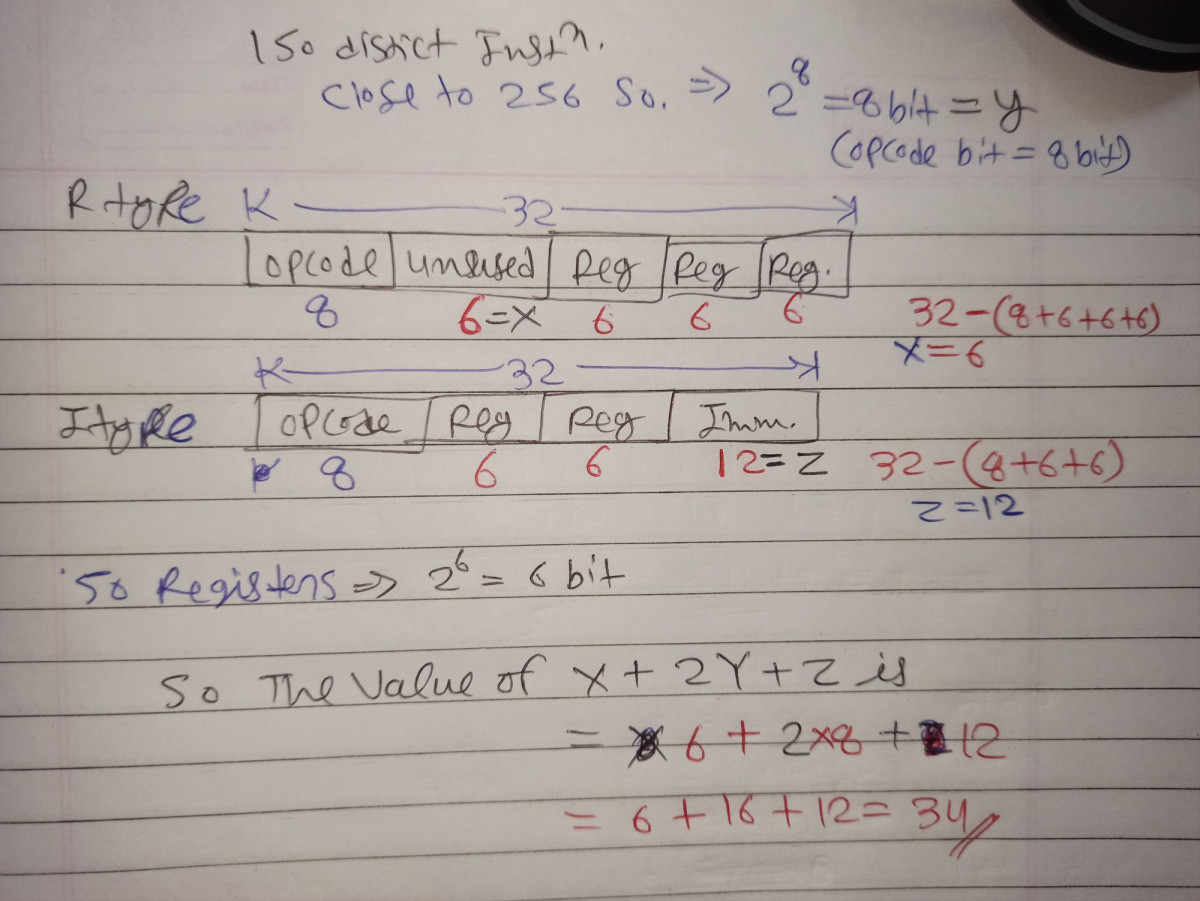 150 distict Instn.
Close to 256 So. => 2^8 = 8 bit = y
(opcode bit = 8 bit)
R type K ——— 32 ———>K
opcode | unsused | Reg | Reg | Reg.
8 6=X 6 6 6 32-(8+6+6+6)
X=6
K ——— 32 ———>|
I type opcode | Reg | Reg | Imm.
8 6 6 12=Z 32-(8+6+6)
Z=12
50 Registers => 2^6 = 6 bit
So The Value of X + 2Y + Z is
= 6 + 2×8 + 12
= 6 + 16 + 12 = 34